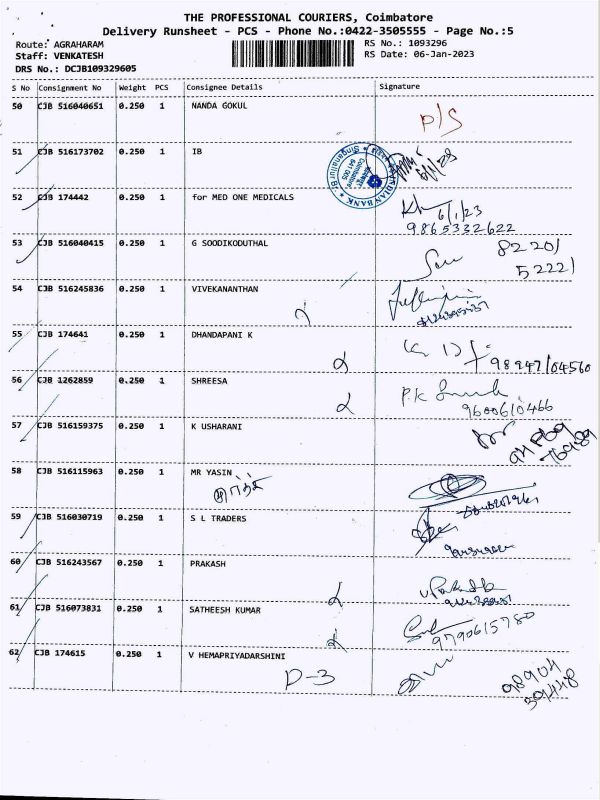 THE PROFESSIONAL COURIERS, Coimbatore
Delivery Runsheet - PCS - Phone No.:0422-3505555 - Page No.:5
Route: AGRAHARAM
RS No.: 1093296
Staff: VENKATESH
RS Date: 06-Jan-2023
DRS No.: DCJB109329605
S No Consignment No Weight PCS Consignee Details Signature
50 CJB 516040651 0.250 1 NANDA GOKUL P/S
51 CJB 516173702 0.250 1 IB
INDIAN BANK
Coimbatore
641 005
52 CJB 174442 0.250 1 for MED ONE MEDICALS 6/1/23
9865332622
53 CJB 516040415 0.250 1 G SOODIKODUTHAL 82201
52221
54 CJB 516245836 0.250 1 VIVEKANANTHAN
55 CJB 174641 0.250 1 DHANDAPANI K
98947/04560
56 CJB 1262859 0.250 1 SHREESA P.K
9600610466
57 CJB 516159375 0.250 1 K USHARANI
58 CJB 516115963 0.250 1 MR YASIN
59 CJB 516030719 0.250 1 S L TRADERS
60 CJB 516243567 0.250 1 PRAKASH
61 CJB 516073831 0.250 1 SATHEESH KUMAR
9790615780
62 CJB 174615 0.250 1 V HEMAPRIYADARSHINI
D-3
98904
39448